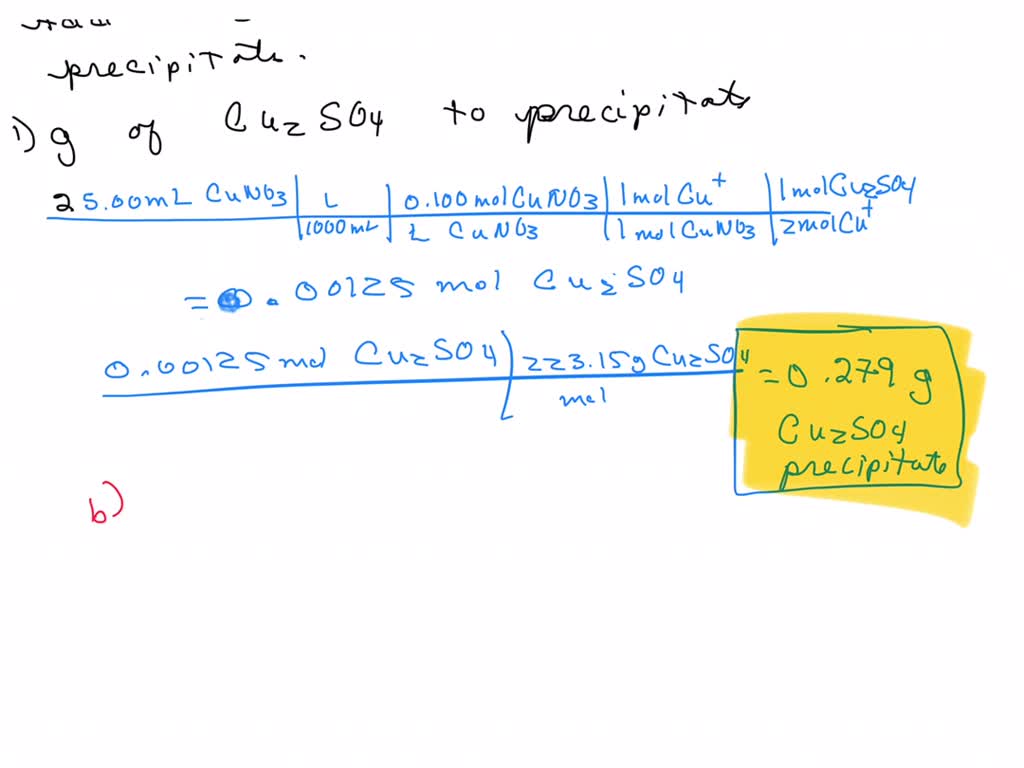 precipitate.
1) g of Cu2SO4 to precipitate
25.00mL CuNO3 | L | 0.100molCuNO3 | 1molCu+ | 1molCu2SO4
1000mL | L CuNO3 | 1molCuNO3 | 2molCu+
= 0.00125 mol Cu2SO4
0.00125 mol Cu2SO4 | 223.15g Cu2SO4
mol
= 0.279 g
Cu2SO4
precipitate
b)